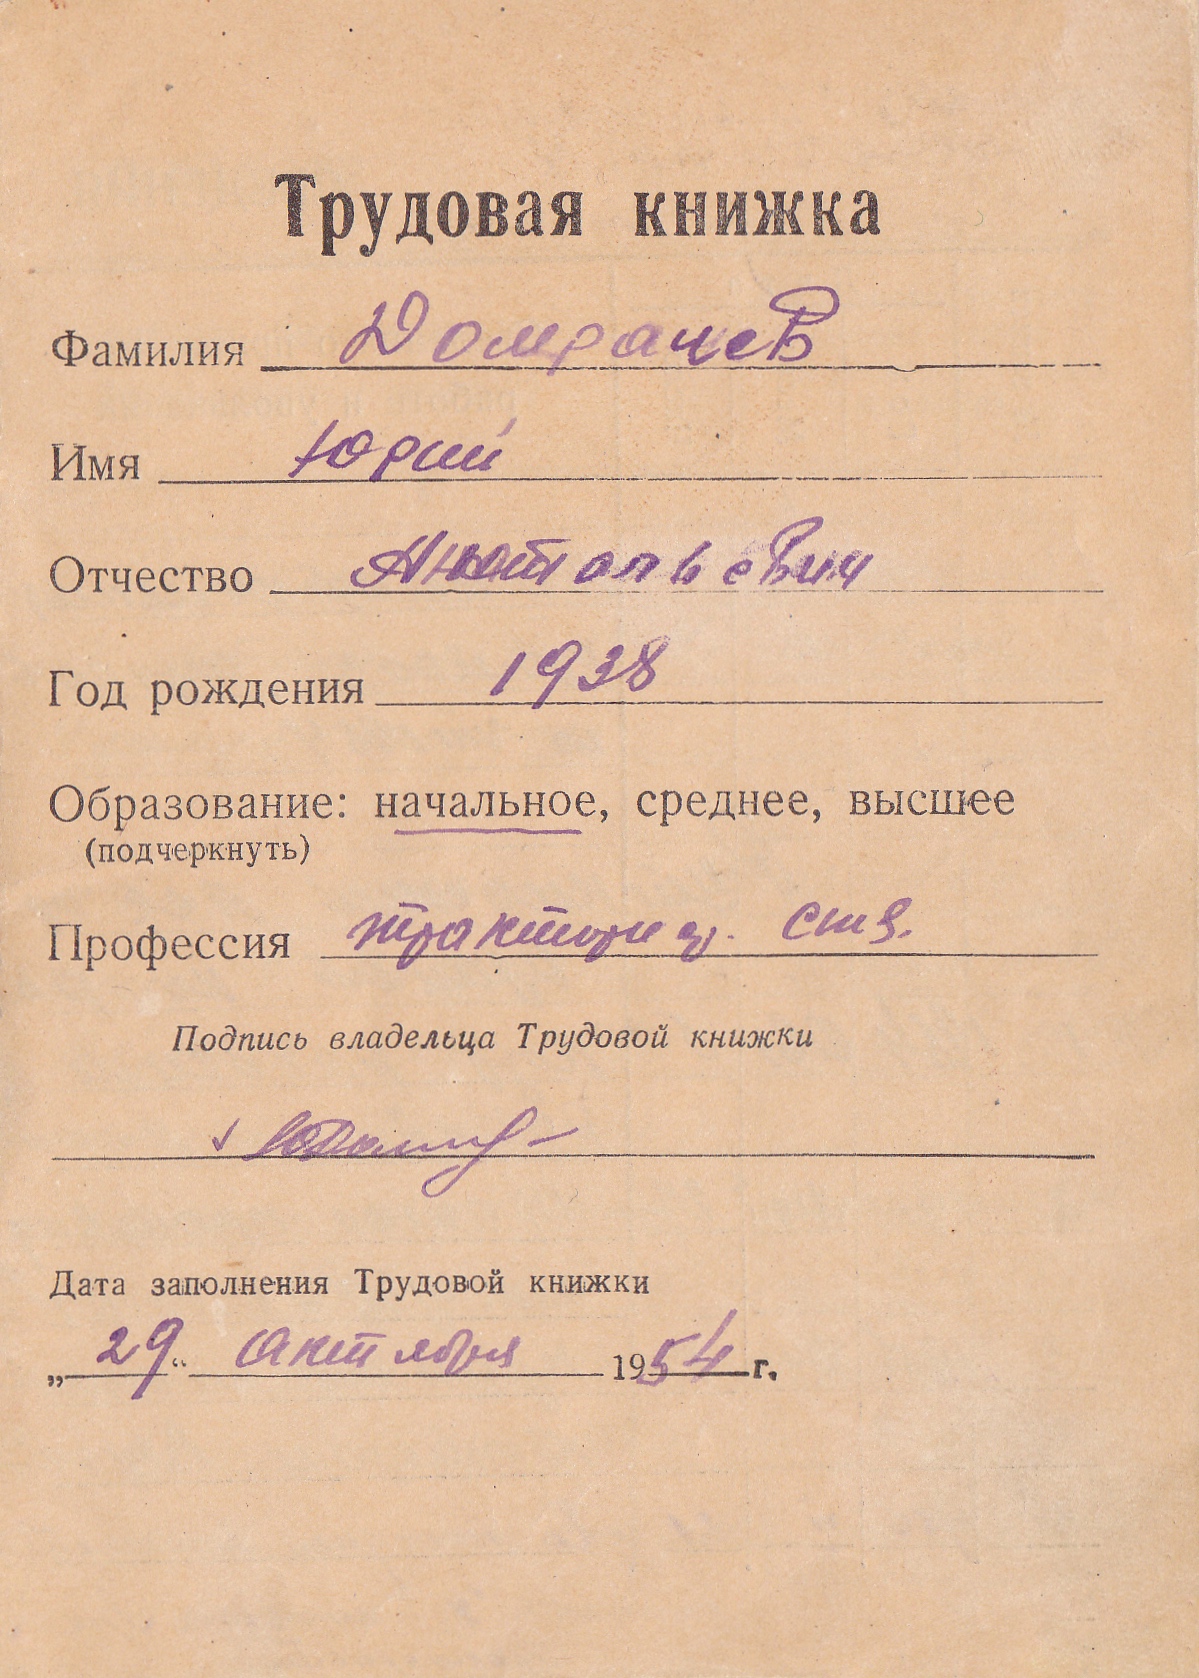 Трудовая книжка
Фамилия Домрачев
Имя Юрий
Отчество Анатольевич
Год рождения 1938
Образование: начальное, среднее, высшее
(подчеркнуть)
Профессия
Подпись владельца Трудовой книжки
Дата заполнения Трудовой книжки
„29“ октября 1954 г.